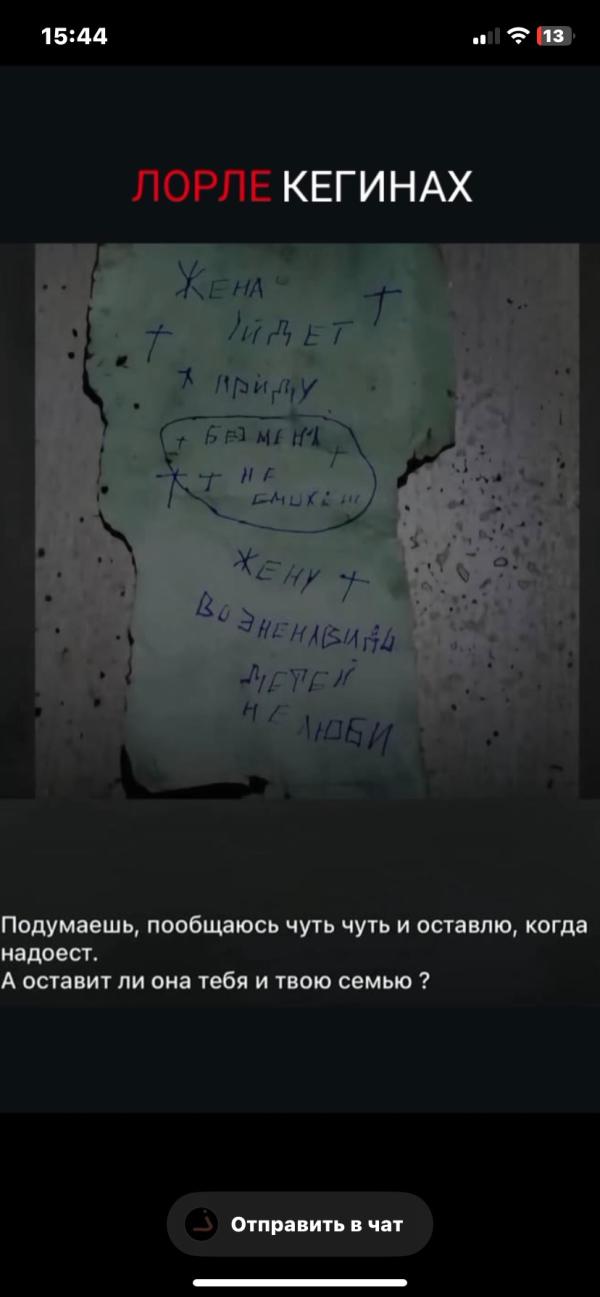 15:44
13
ЛОРЛЕ КЕГИНАХ
ЖЕНА
УЙДЕТ
ПРИДУ
БЕЗ МЕНЯ
НЕ
СМОЖЕШ
ЖЕНУ
ВОЗНЕНАВИДЬ
ДЕТЕЙ
НЕ ЛЮБИ
Подумаешь, пообщаюсь чуть чуть и оставлю, когда
надоест.
А оставит ли она тебя и твою семью ?
Отправить в чат